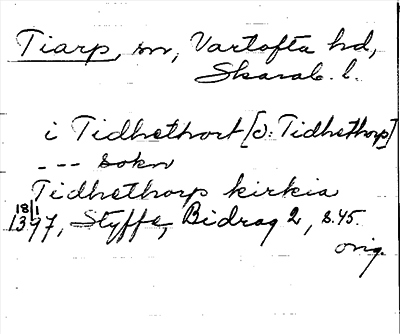 Tiarp, sn, Vartofta hd,
Skarab. l.
i Tidhethort [ɔ: Tidhethorp]
--- sokn
Tidhethorp kirkia
18/1
1397, Styffe, Bidrag 2, s. 45.
orig.